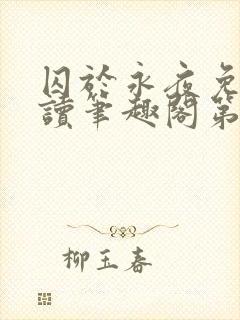 囚於永夜免
讀筆趣閣第
柳玉春